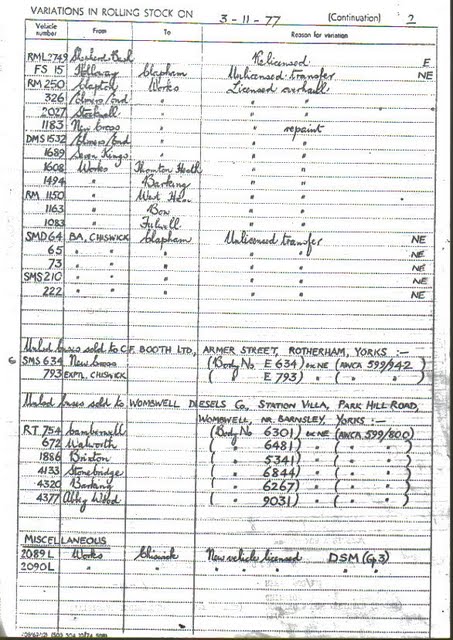 VARIATIONS IN ROLLING STOCK ON 3-11-77 (Continuation) 2
Vehicle number From To Reason for variation
RML 2749 Shepherd's Bush Relicensed E
FS 15 Holloway Clapham Unlicensed transfer NE
RM 250 Clapton Works Licensed overhaul
326 Elmers End " " "
2027 Stockwell " " "
1183 New Cross " " repaint
DMS 1532 Elmers End " " "
1689 Seven Kings " " "
1608 Works Thornton Heath " "
1494 " Barking " "
RM 1150 " West Ham " "
1163 " Bow " "
1083 " Fulwell " "
SMD 64 BA, CHISWICK Clapham Unlicensed transfer NE
65 " " " " " NE
73 " " " " " NE
SMS 210 " " " " " NE
222 " " " " " NE
Unlcd buses sold to C.F. BOOTH LTD, ARMER STREET, ROTHERHAM, YORKS :-
SMS 634 New Cross (Body No E 634) ex NE (AWCA 599/942)
793 EXPTL. CHISWICK ( " E 793) " ( " " )
Unlcd buses sold to WOMBWELL DIESELS Co, STATION VILLA, PARK HILL ROAD,
WOMBWELL, NR. BARNSLEY, YORKS :-
RT 754 Camberwell (Body No 6301) ex NE (AWCA 599/800)
672 Walworth ( " 6481) " ( " " )
1886 Brixton ( " 5341) " ( " " )
4133 Stonebridge ( " 6844) " ( " " )
4320 Barking ( " 6267) " ( " " )
4377 Abbey Wood ( " 9031) " ( " " )
MISCELLANEOUS
2089L Works Chiswick New vehicle licensed DSM (Gp3)
2090L " " " " " " "